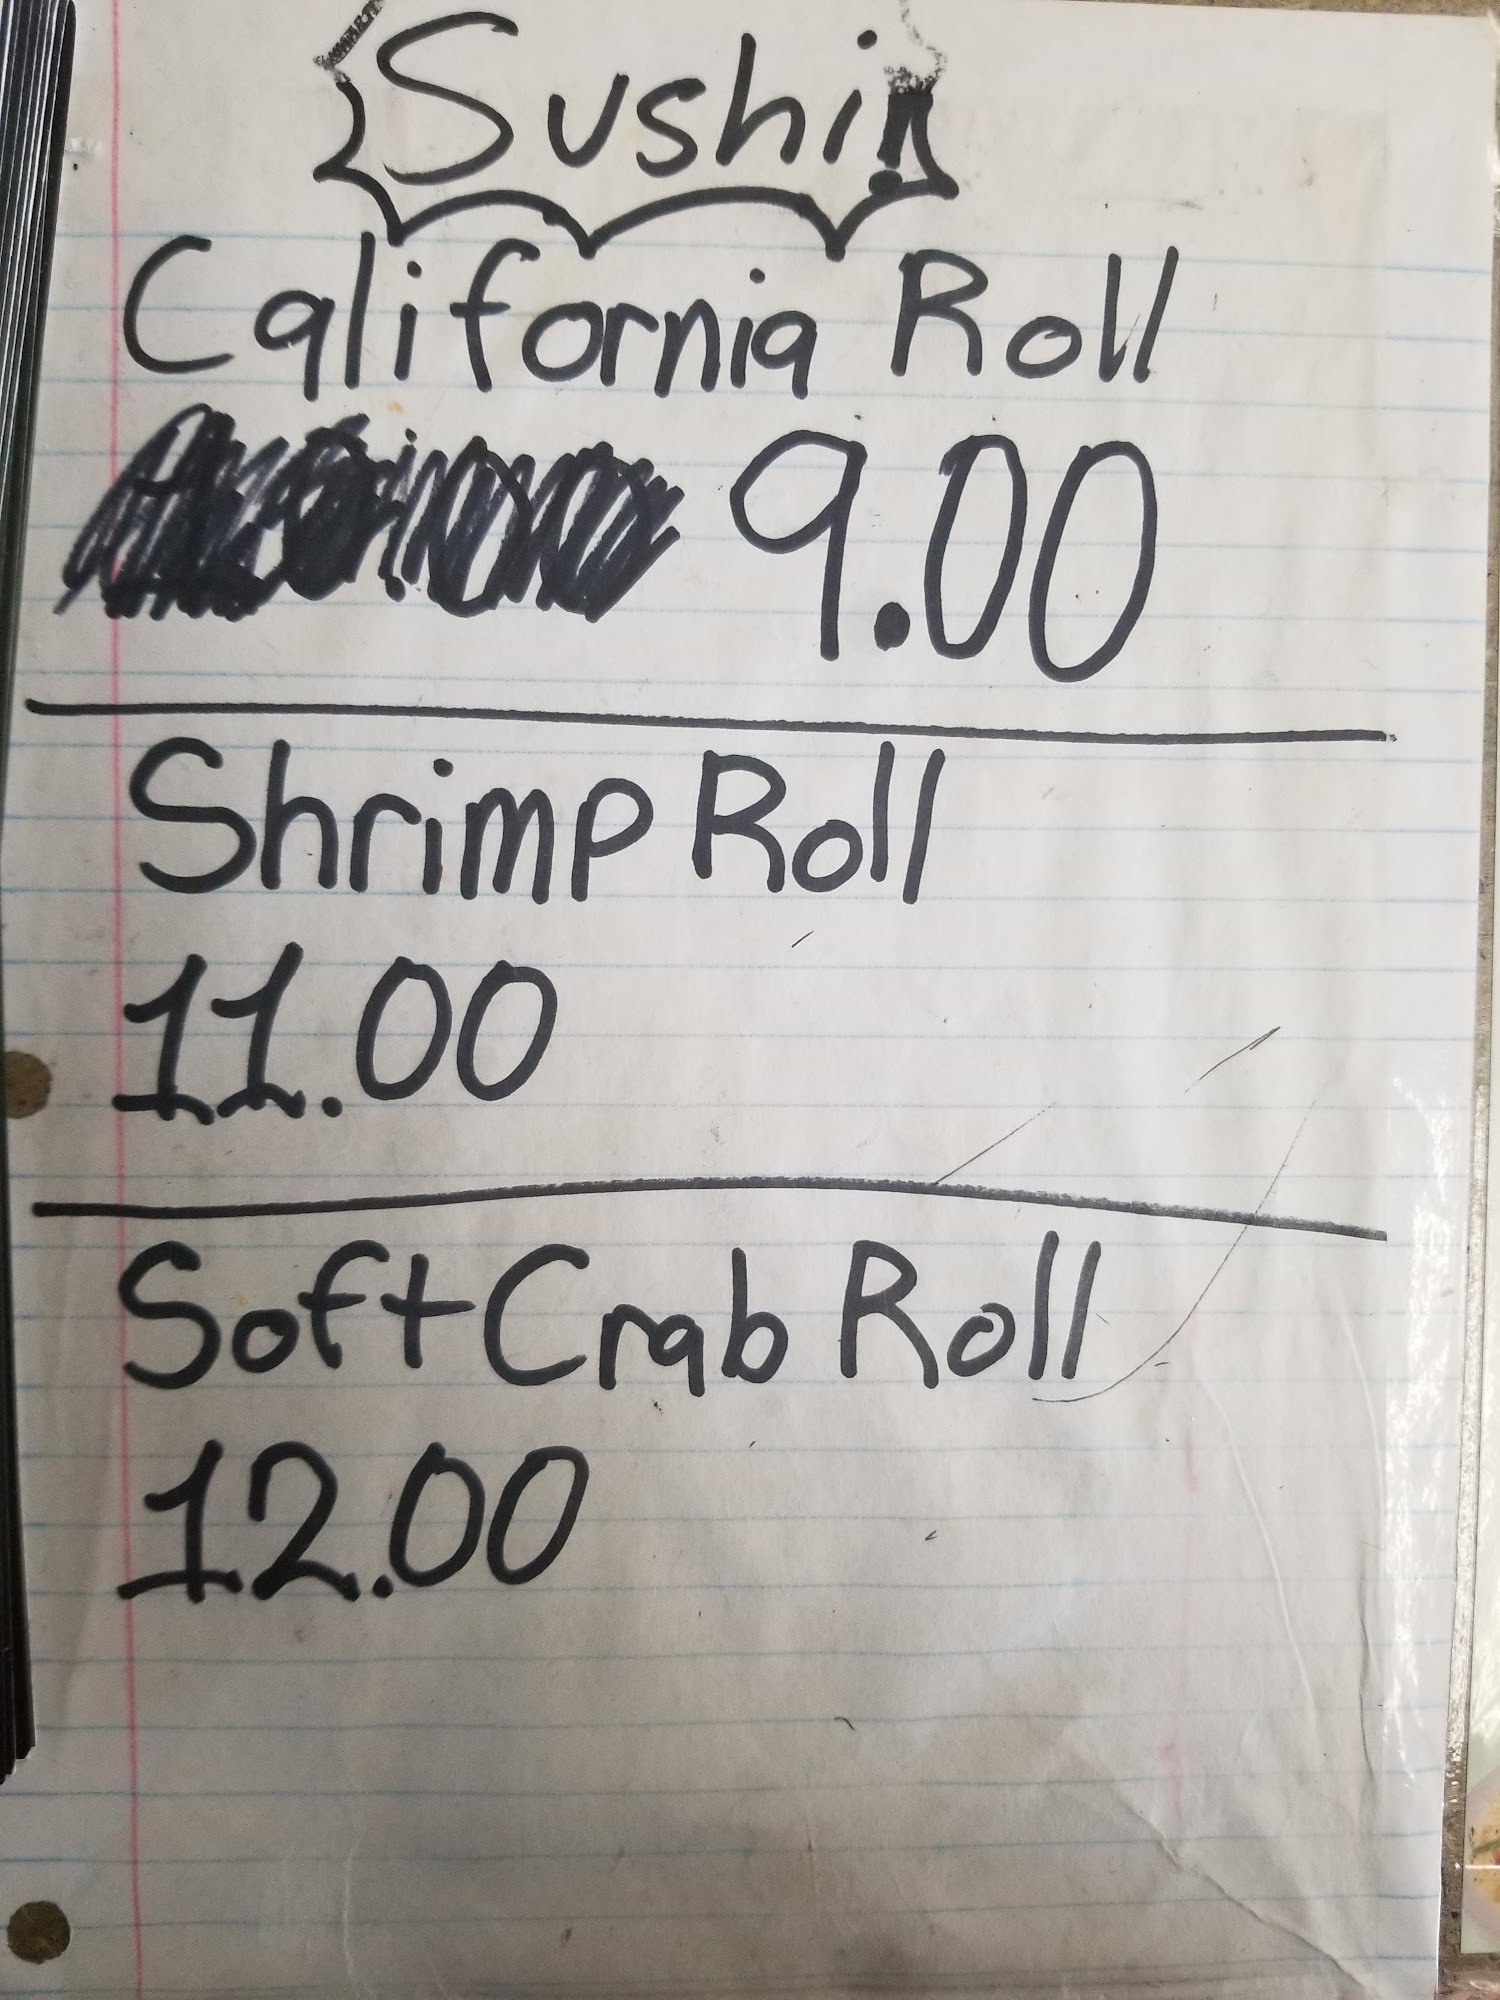 Sushi!
California Roll
9.00
Shrimp Roll
11.00
Soft Crab Roll
12.00